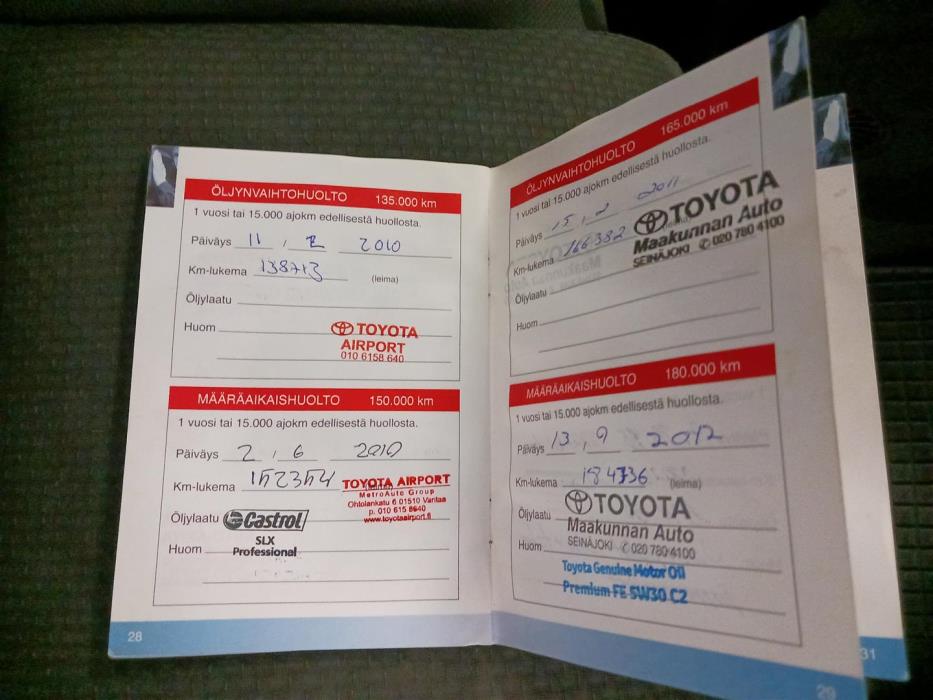 ÖLJYNVAIHTOHUOLTO 135.000 km
1 vuosi tai 15.000 ajokm edellisestä huollosta.
Päiväys 11 , 2 2010
Km-lukema 138713
(leima)
Öljylaatu
Huom
TOYOTA
AIRPORT
010 6158 640
MÄÄRÄAIKAISHUOLTO 150.000 km
1 vuosi tai 15.000 ajokm edellisestä huollosta.
Päiväys 2 , 6 2010
Km-lukema 152354
TOYOTA AIRPORT
MetroAuto Group
Ohtolankatu 6 01510 Vantaa
p. 010 615 8640
www.toyotaairport.fi
Öljylaatu Castrol
SLX
Professional
Huom
28
ÖLJYNVAIHTOHUOLTO 165.000 km
1 vuosi tai 15.000 ajokm edellisestä huollosta.
Päiväys 15 , 2 2011
Km-lukema 166382
TOYOTA
Maakunnan Auto
SEINÄJOKI ✆ 020 780 4100
Öljylaatu
Huom
MÄÄRÄAIKAISHUOLTO 180.000 km
1 vuosi tai 15.000 ajokm edellisestä huollosta.
Päiväys 13 , 9 2012
Km-lukema 184736 (leima)
Öljylaatu TOYOTA
Maakunnan Auto
Huom SEINÄJOKI ✆ 020 780 4100
Toyota Genuine Motor Oil
Premium FE 5W30 C2
29
31